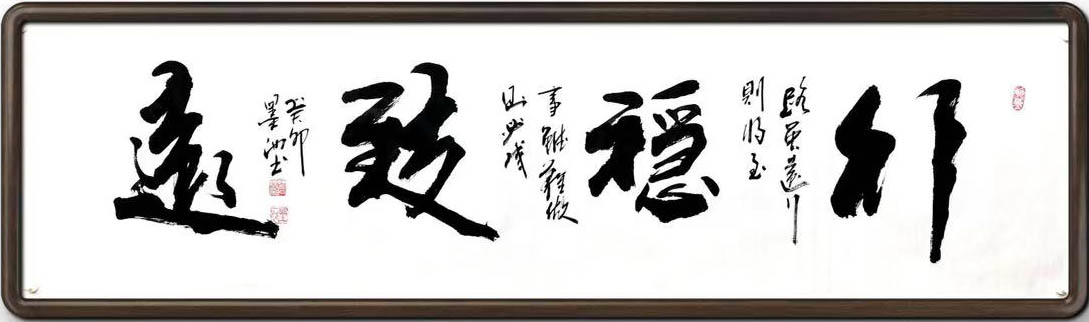 行
路虽遠行
則将至
穩
事雖難做
則必成
致
遠
癸卯
墨池